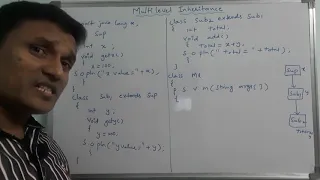 Multilevel Inheritance
import java.lang.*;
Sup
int x;
void getx()
{ x=100;
S.o.pln("x value="+x)
class Sub1 extends Sup
int y;
void gety()
{ y=200;
S.o.pln("y value="+y);
}
class Sub2 extends Sub1
{ int total;
void add()
{ total=x+y;
S.o.pln("total="+total);
}
}
class ML
{
P S v m(String args[])
{
Sup
Sub1
Sub2